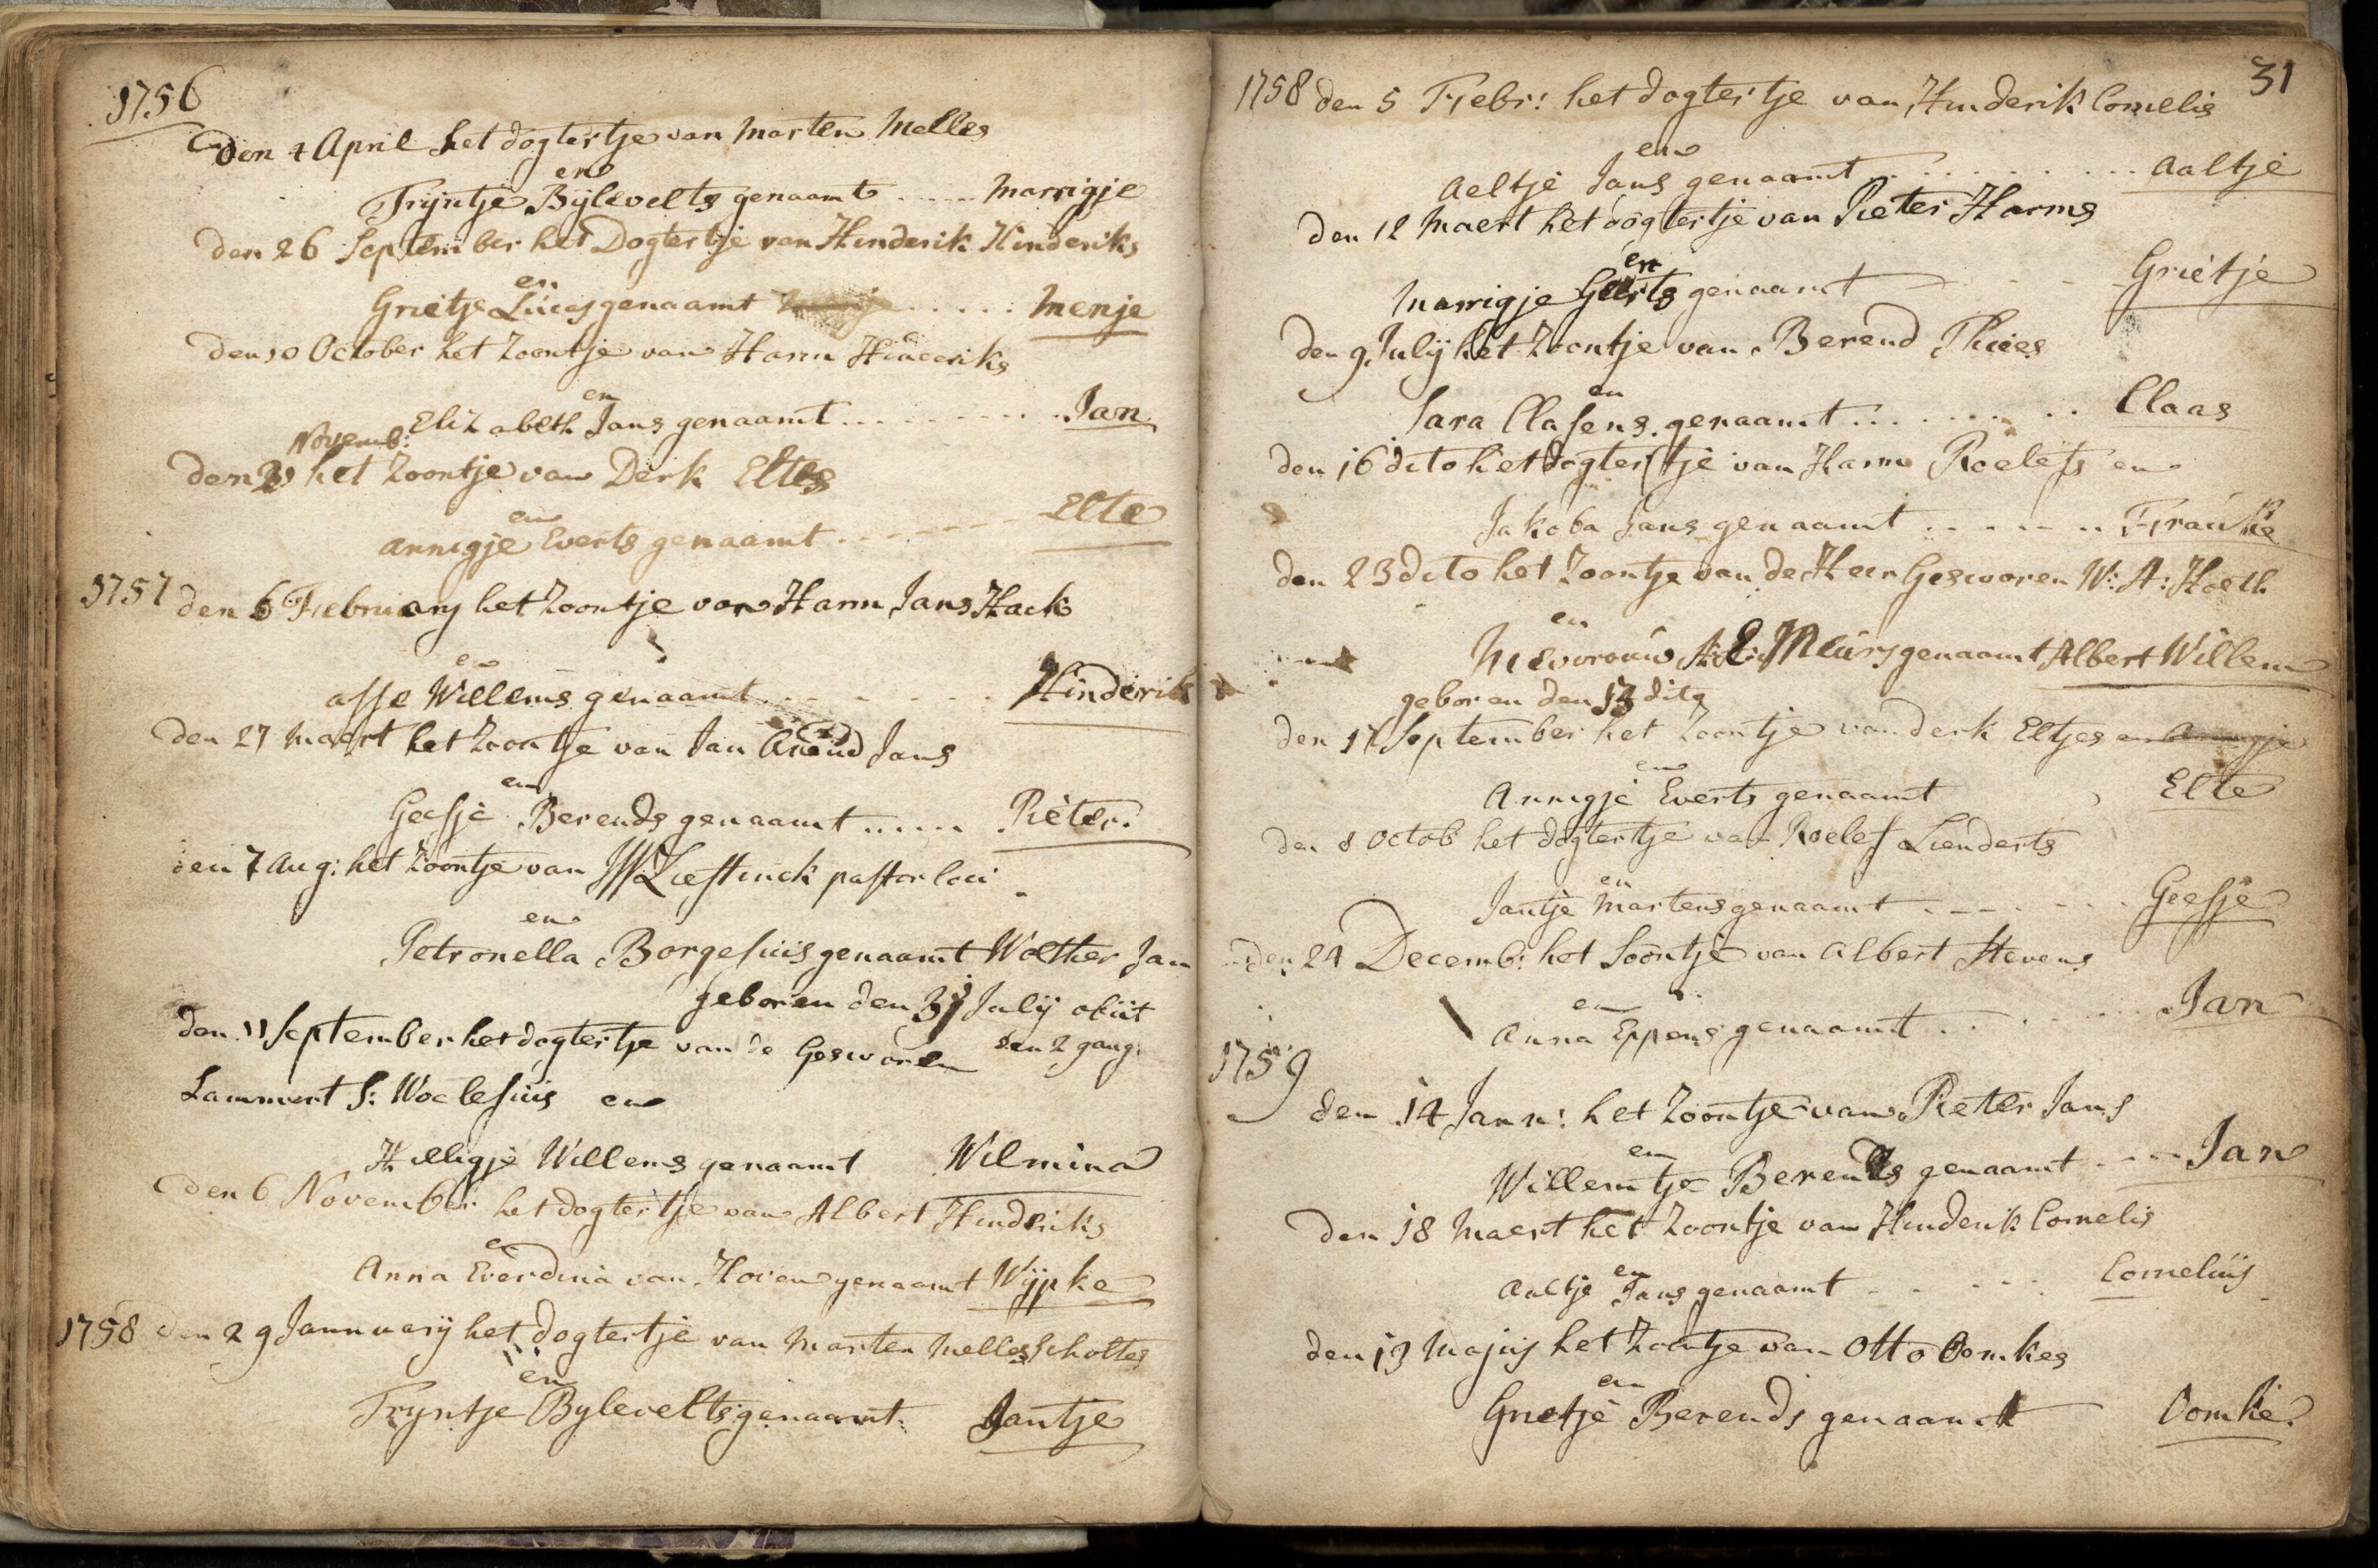 1756
den 4 April het dogtertje van Marten Melles
en
Trijntje Bijlevelts genaamt ..... Marrigje
den 26 September het Dogtertje van Hinderik Hinderiks
en
Grietje Lucas genaamt ..... Menje
den 10 October het Zoontje van Harm Hinderiks
en
Elizabeth Jans genaamt ........ Jan
Novemb:
den het Zoontje van Derk Eltes
en
Annigje Everts genaamt ....... Elte
1757 den 6 Februarij het Zoontje van Harm Jans Hack
en
Asse Willems genaamt ....... Hinderik
den 27 Maert het Zoontje van Jan Arend Jans
en
Geesje Berends genaamt ..... Pieter
den 7 Aug: het Zoontje van Liestinck pastor loci
en
Petronella Borgesius genaamt Wolther Jan
geboren den 31 July obiit
den 11 September het dogtertje van de Gesworen
den 2 gang:
Lammert S: Woelesius en
Hilligje Willems genaamt Wilmina
den 6 November het dogtertje van Albert Hindriks
en
Anna Everdina van Hoven genaamt Wijpke
1758 den 29 Jannuarij het dogtertje van Marten Melles Scholtes
en
Tryntje Bylevelts genaamt Jantje
31
1758 den 5 Febr: het dogtertje van Hinderik Cornelis
en
Aeltje Jans genaamt ......... Aaltje
den 12 Maert het dogtertje van Pieter Harms
en
Marrigje Geerts genaamt - - - Grietje
den 9 Julij het Zoontje van Berend
en
Sara Clasens genaamt ....... Claas
den 16 dito het dogtertje van Harm Roelefs en
Jakoba Jans genaamt ...... Frauke
den 23 dito het Zoontje van de Heer Gesworen W: A: Hoeth
en
Mevvrouw A: E: Meurs genaamt Albert Willem
geboren den 13 dito
den 17 September het Zoontje van derk Eltjes en Annigje
en
Annigje Everts genaamt Elte
den 8 Octob het dogtertje van Roelef Lienderts
en
Jantje Martens genaamt ....... Geesje
den 24 Decemb: het Soontje van Albert Stevens
en
Anna Eppens genaamt ...... Jan
1759
den 14 Jann: het Zoontje van Pieter Jans
en
Willemtje Berends genaamt ... Jan
den 18 Maert het Zoontje van Hinderik Cornelis
en
Aaltje Jans genaamt ..... Cornelius
den 13 Majus het Zoontje van Otto Oomkes
en
Grietje Berends genaamt Oomke